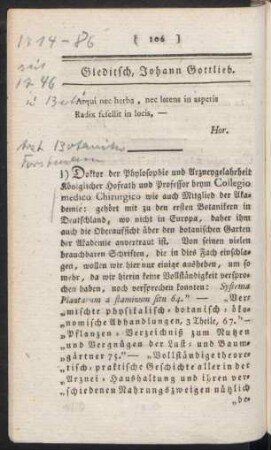 1714-86
( 104 )
Gleditsch, Johann Gottlieb.
1746
Atqui nec herba, nec latens in asperis
Radix fefellit in locis, —
Hor.
Arzt Botaniker
Forstmann
1) Doktor der Phylosophie und Arzneygelahrheit
Königlicher Hofrath und Professor beym Collegio
medico Chirurgico wie auch Mitglied der Aka-
demie: gehört mit zu den ersten Botanikern in
Deutschland, wo nicht in Europa, daher ihm
auch die Oberaufsicht über den botanischen Garten
der Akademie anvertraut ist. Von seinen vielen
brauchbaren Schriften, die in dies Fach einschla-
gen, wollen wir hier nur einige ausheben, um so
mehr, da wir hier keine Vollständigkeit verspro-
chen haben, noch versprechen konnten: Systema
Plantarum a staminum situ 64." — „Ver-
„mischte physikalisch-botanisch-öko-
„nomische Abhandlungen, 3 Theile, 67." —
„Pflanzen-Verzeichniß zum Nutzen
„und Vergnügen der Lust- und Baum-
„gärtner 73." — „Vollständige theore-
„tisch-praktische Geschichte aller in der
„Arznei-Haushaltung und ihren ver-
„schiedenen Nahrungszweigen nützlich
„be-